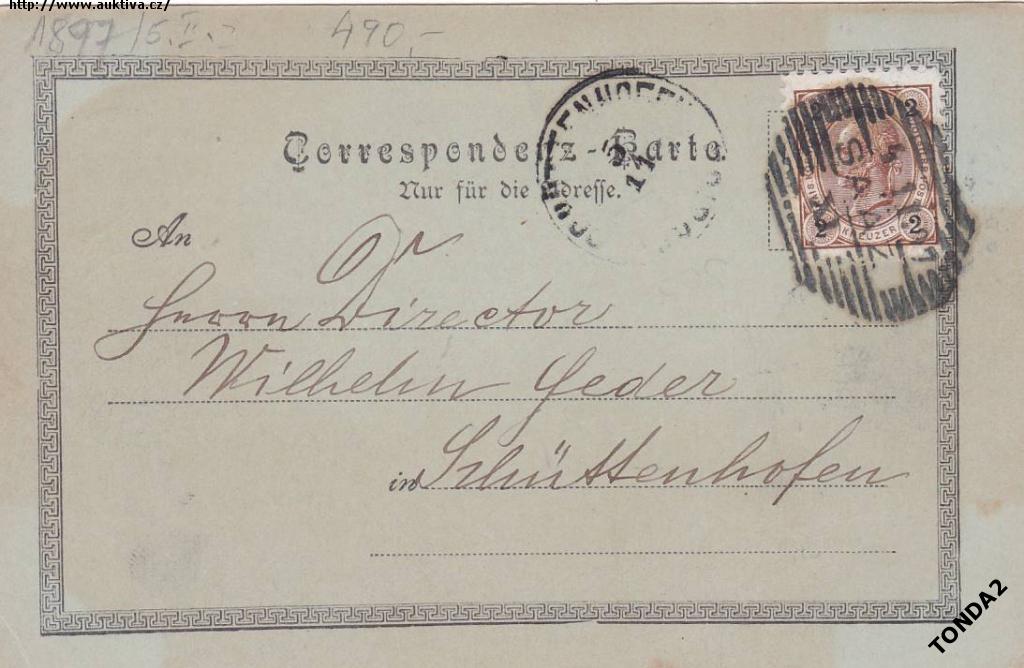 http://www.auktiva.cz/
1897/5.I.
490,-
Correspondenz-Karta.
Nur für die Adresse.
SCHÜTTENHOFEN
An
Herrn Director
Wilhelm Feder
in Schüttenhofen
2 2
KREUZER
2 2
TONDA2